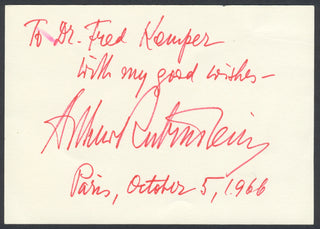 To Dr. Fred Kamper
with my good wishes—
Arthur Rubinstein
Paris, October 5, 1966